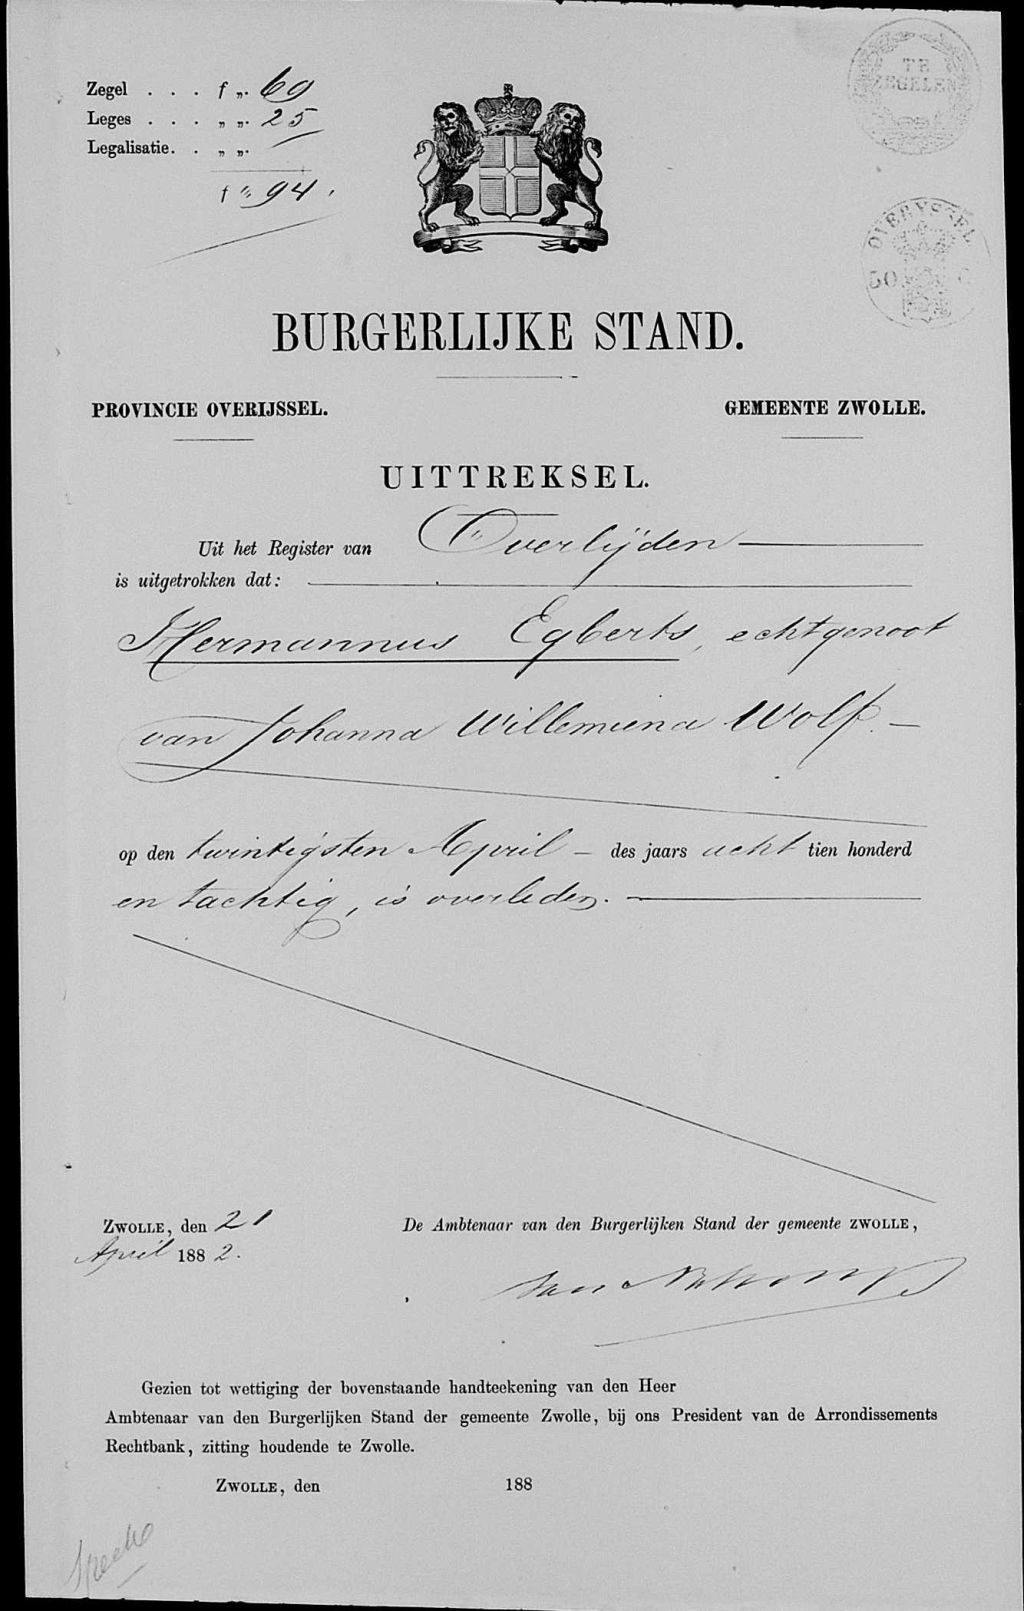 Zegel . . . f „. 69
Leges . . . „ „. 25
Legalisatie. . „ „.
f „ 94.
TE ZEGELEN
OVERYSSEL
50 C
BURGERLIJKE STAND.
PROVINCIE OVERIJSSEL.
GEMEENTE ZWOLLE.
UITTREKSEL.
Uit het Register van Overlijden
is uitgetrokken dat:
Hermannus Egberts, echtgenoot
van Johanna Willemiena Wolf.
op den twintigsten April des jaars acht tien honderd
en tachtig, is overleden.
ZWOLLE, den 21
April 1882.
De Ambtenaar van den Burgerlijken Stand der gemeente ZWOLLE,
Gezien tot wettiging der bovenstaande handteekening van den Heer
Ambtenaar van den Burgerlijken Stand der gemeente Zwolle, bij ons President van de Arrondissements
Rechtbank, zitting houdende te Zwolle.
ZWOLLE, den 188